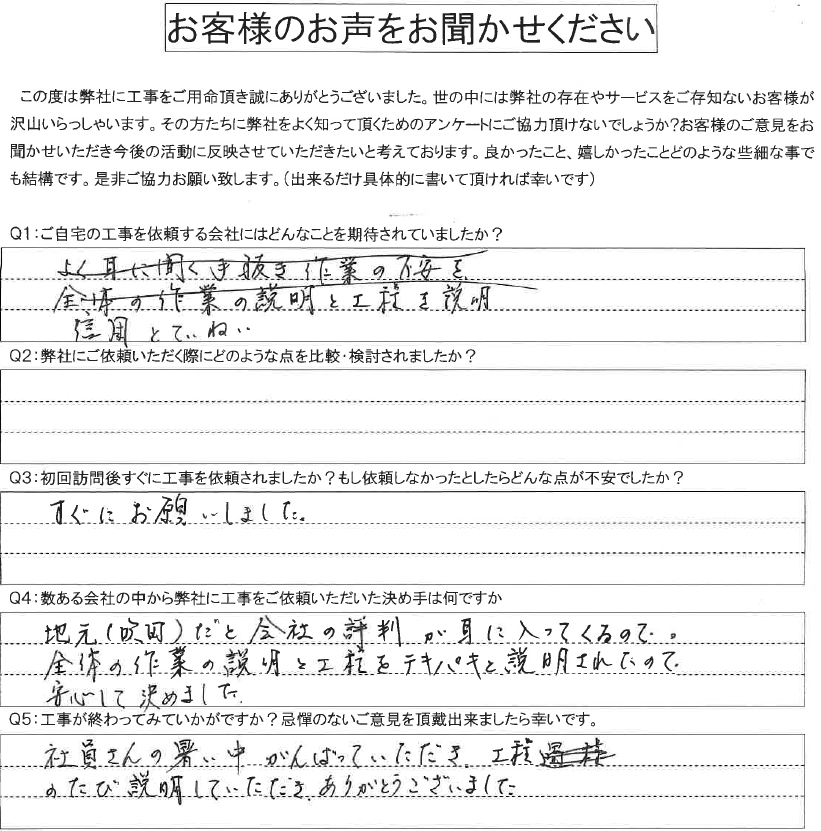 お客様のお声をお聞かせください
この度は弊社に工事をご用命頂き誠にありがとうございました。世の中には弊社の存在やサービスをご存知ないお客様が
沢山いらっしゃいます。その方たちに弊社をよく知って頂くためのアンケートにご協力頂けないでしょうか?お客様のご意見をお
聞かせいただき今後の活動に反映させていただきたいと考えております。良かったこと、嬉しかったことどのような些細な事で
も結構です。是非ご協力お願い致します。(出来るだけ具体的に書いて頂ければ幸いです)
Q1:ご自宅の工事を依頼する会社にはどんなことを期待されていましたか?
よく耳に聞く手抜き作業の不安を
全体の作業の説明と工程を説明
信用とていねい
Q2:弊社にご依頼いただく際にどのような点を比較・検討されましたか?
Q3:初回訪問後すぐに工事を依頼されましたか?もし依頼しなかったとしたらどんな点が不安でしたか?
すぐにお願いしました。
Q4:数ある会社の中から弊社に工事をご依頼いただいた決め手は何ですか
地元(吹町)だと会社の評判が耳に入ってくるので。
全体の作業の説明と工程をテキパキと説明されたので
安心して決めました。
Q5:工事が終わってみていかがですか?忌憚のないご意見を頂戴出来ましたら幸いです。
社員さんの暑い中がんばっていただき、工程
のたび説明していただき、ありがとうございました